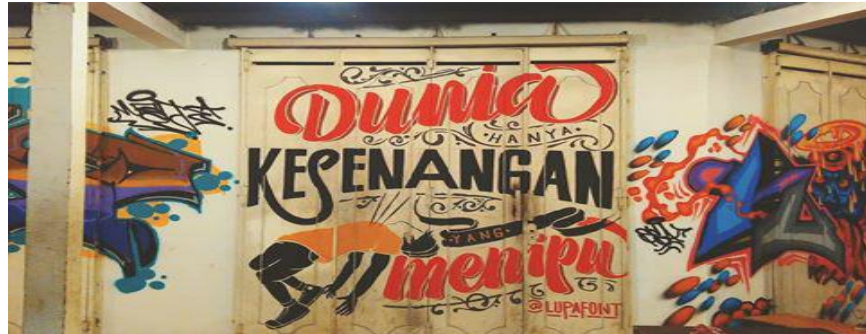 Dunia
HANYA
KESENANGAN
YANG
menipu
@LUPAFONT